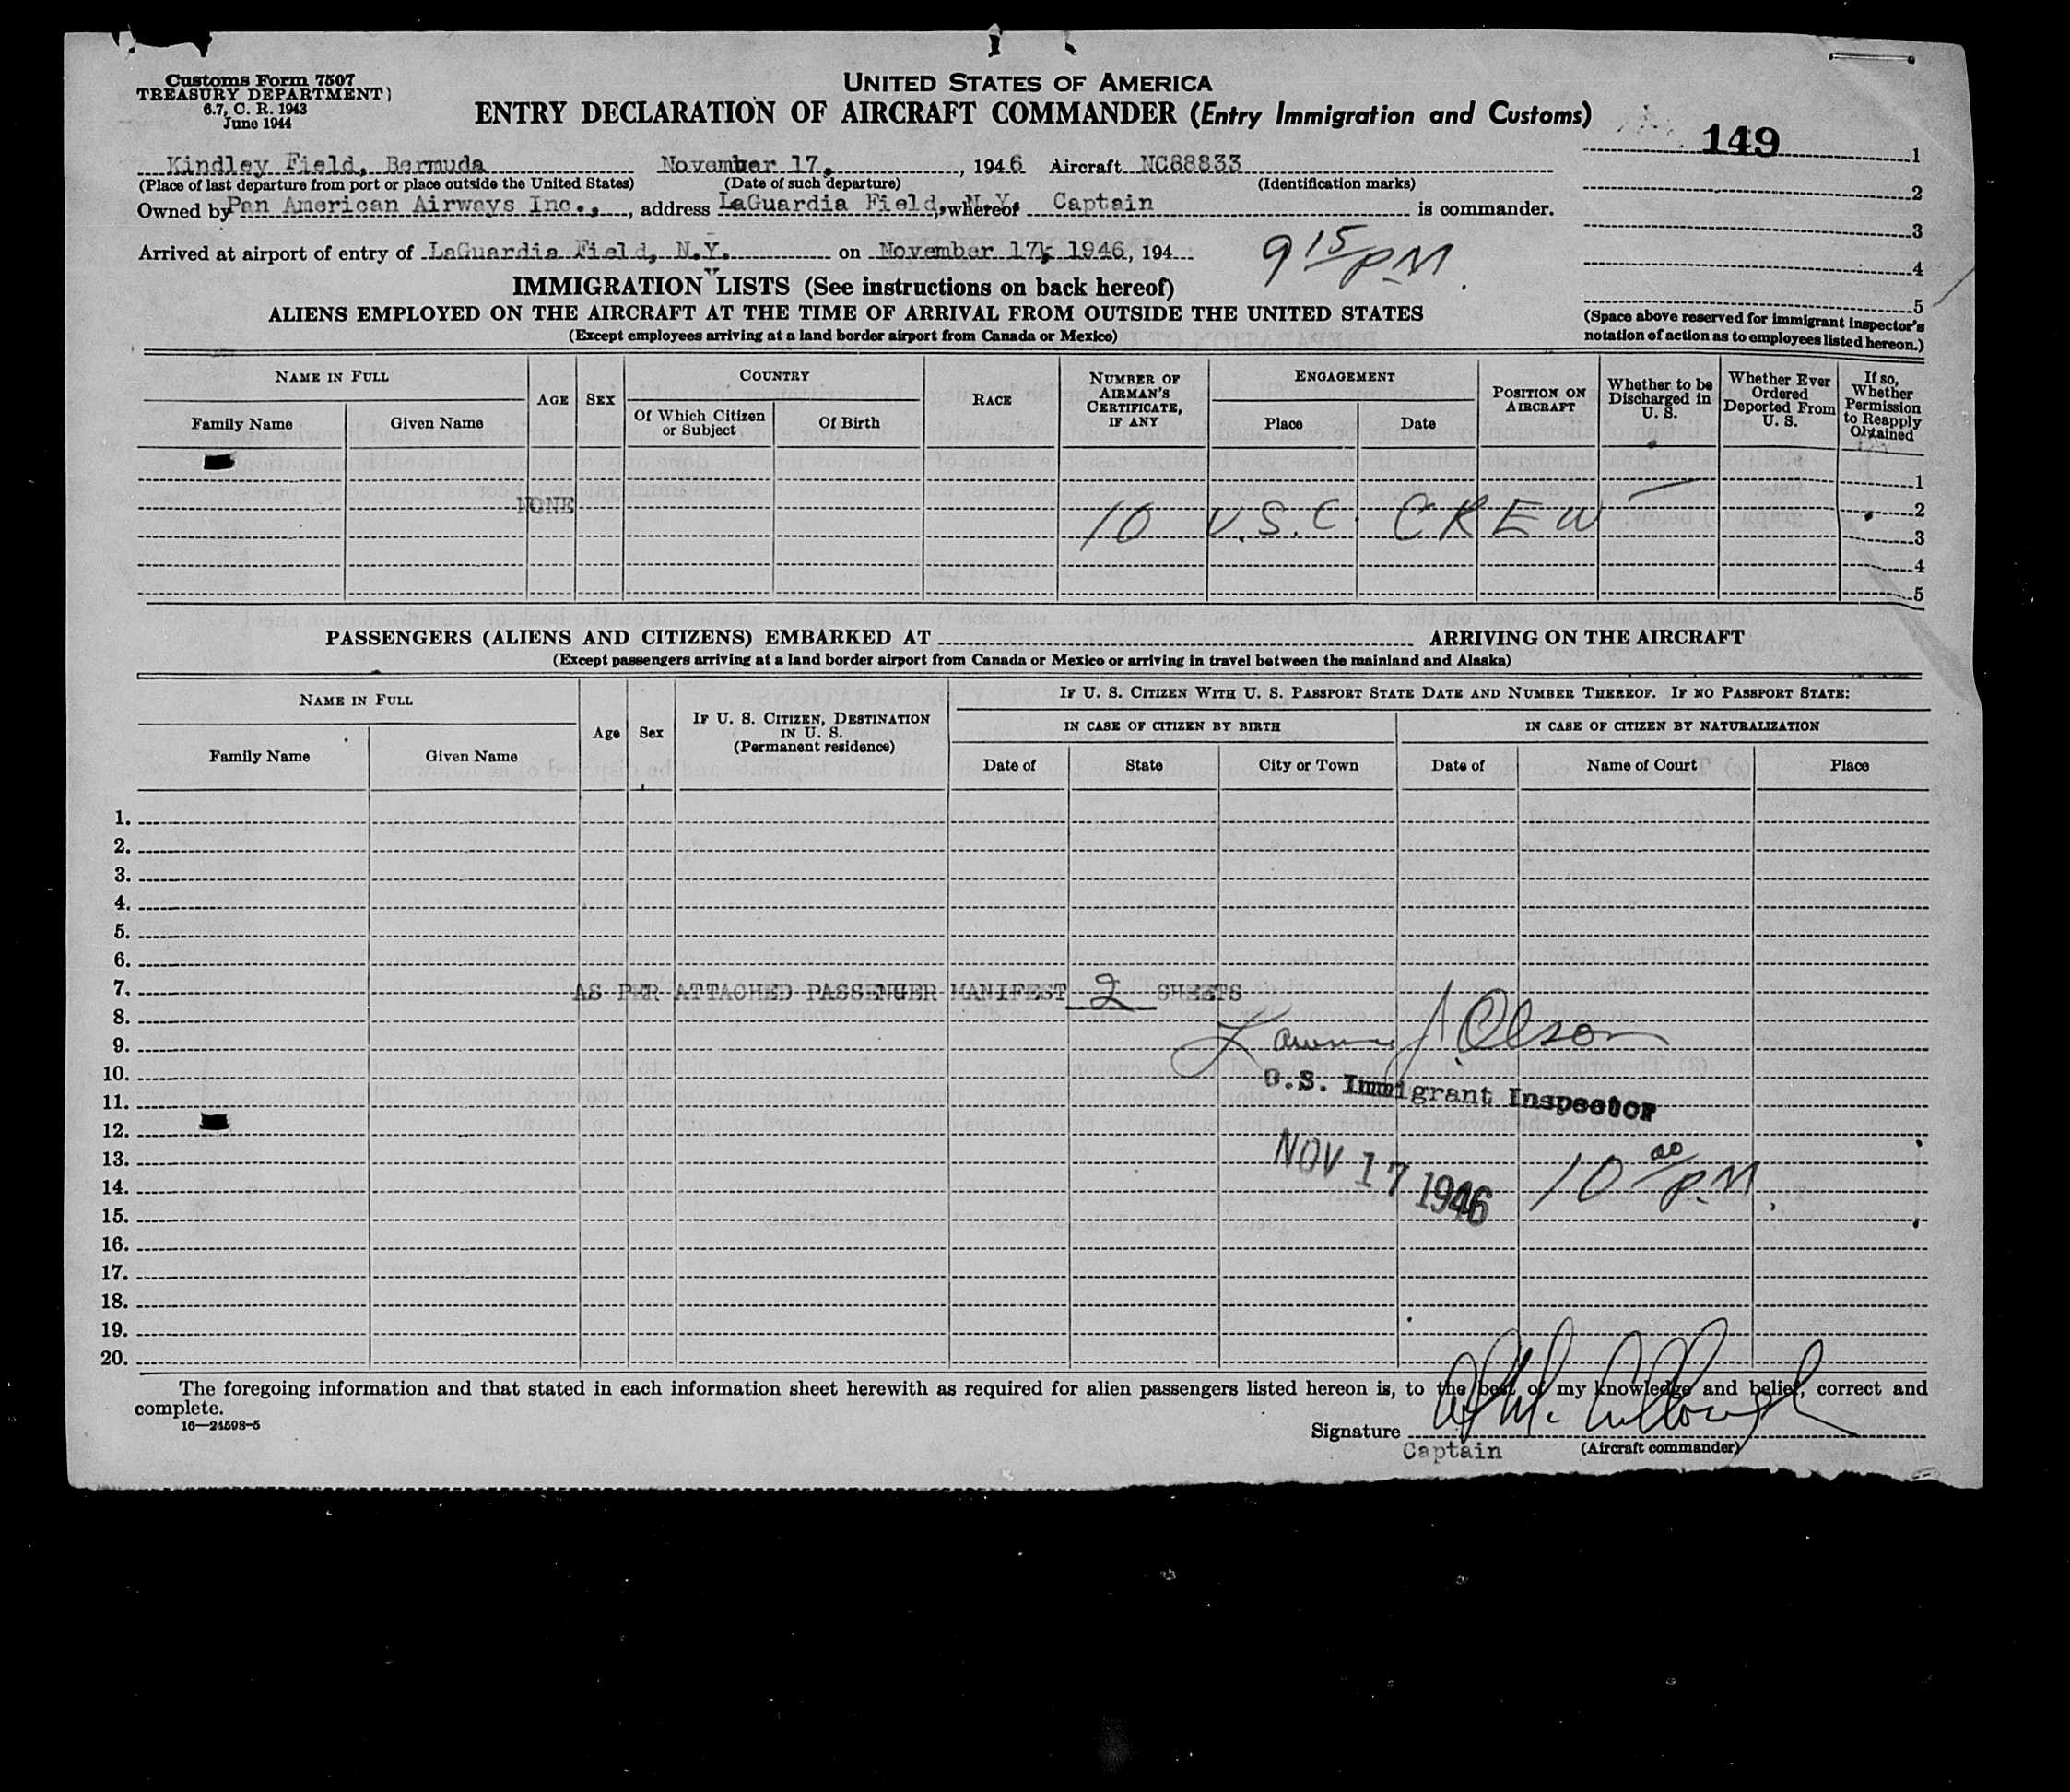 Customs Form 7507
TREASURY DEPARTMENT)
6.7, C. R. 1943
June 1944
UNITED STATES OF AMERICA
ENTRY DECLARATION OF AIRCRAFT COMMANDER (Entry Immigration and Customs)
149
1
Kindley Field, Bermuda November 17, , 1946 Aircraft NC88833
(Place of last departure from port or place outside the United States) (Date of such departure) (Identification marks)
2
Owned by Pan American Airways Inc., , address LaGuardia Field, N.Y. , whereof Captain is commander.
3
Arrived at airport of entry of LaGuardia Field, N.Y. on November 17, 1946, 194
9 15 PM
4
IMMIGRATION LISTS (See instructions on back hereof)
5
ALIENS EMPLOYED ON THE AIRCRAFT AT THE TIME OF ARRIVAL FROM OUTSIDE THE UNITED STATES
(Except employees arriving at a land border airport from Canada or Mexico)
(Space above reserved for immigrant inspector's
notation of action as to employees listed hereon.)
NAME IN FULL
Family Name Given Name
AGE SEX
COUNTRY
Of Which Citizen or Subject
Of Birth
RACE
NUMBER OF AIRMAN'S CERTIFICATE, IF ANY
ENGAGEMENT
Place Date
POSITION ON AIRCRAFT
Whether to be Discharged in U. S.
Whether Ever Ordered Deported From U. S.
If so, Whether Permission to Reapply Obtained
1
NONE
2
10 U.S.C. CREW
3
4
5
PASSENGERS (ALIENS AND CITIZENS) EMBARKED AT ARRIVING ON THE AIRCRAFT
(Except passengers arriving at a land border airport from Canada or Mexico or arriving in travel between the mainland and Alaska)
NAME IN FULL
Family Name Given Name
Age Sex
IF U. S. CITIZEN, DESTINATION IN U. S.
(Permanent residence)
IF U. S. CITIZEN WITH U. S. PASSPORT STATE DATE AND NUMBER THEREOF. IF NO PASSPORT STATE:
IN CASE OF CITIZEN BY BIRTH IN CASE OF CITIZEN BY NATURALIZATION
Date of State City or Town Date of Name of Court Place
1.
2.
3.
4.
5.
6.
7. AS PER ATTACHED PASSENGER MANIFEST 2 SHEETS
8.
9. J. Olson
10.
U.S. Immigrant Inspector
11.
12.
13.
NOV 17 1946 10 00 P.M.
14.
15.
16.
17.
18.
19.
20.
The foregoing information and that stated in each information sheet herewith as required for alien passengers listed hereon is, to the best of my knowledge and belief, correct and
complete.
16—24598-5
Signature
Captain (Aircraft commander)